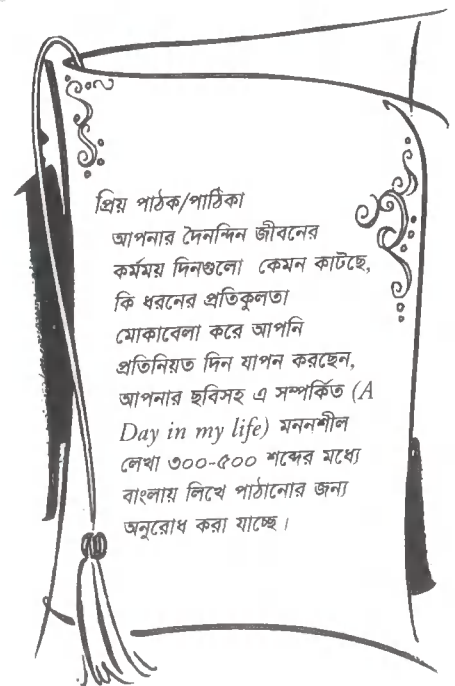 প্রিয় পাঠক/পাঠিকা
আপনার দৈনন্দিন জীবনের
কর্মময় দিনগুলো কেমন কাটছে,
কি ধরনের প্রতিকুলতা
মোকাবেলা করে আপনি
প্রতিনিয়ত দিন যাপন করছেন,
আপনার ছবিসহ এ সম্পর্কিত (A
Day in my life) মননশীল
লেখা ৩০০-৫০০ শব্দের মধ্যে
বাংলায় লিখে পাঠানোর জন্য
অনুরোধ করা যাচ্ছে।